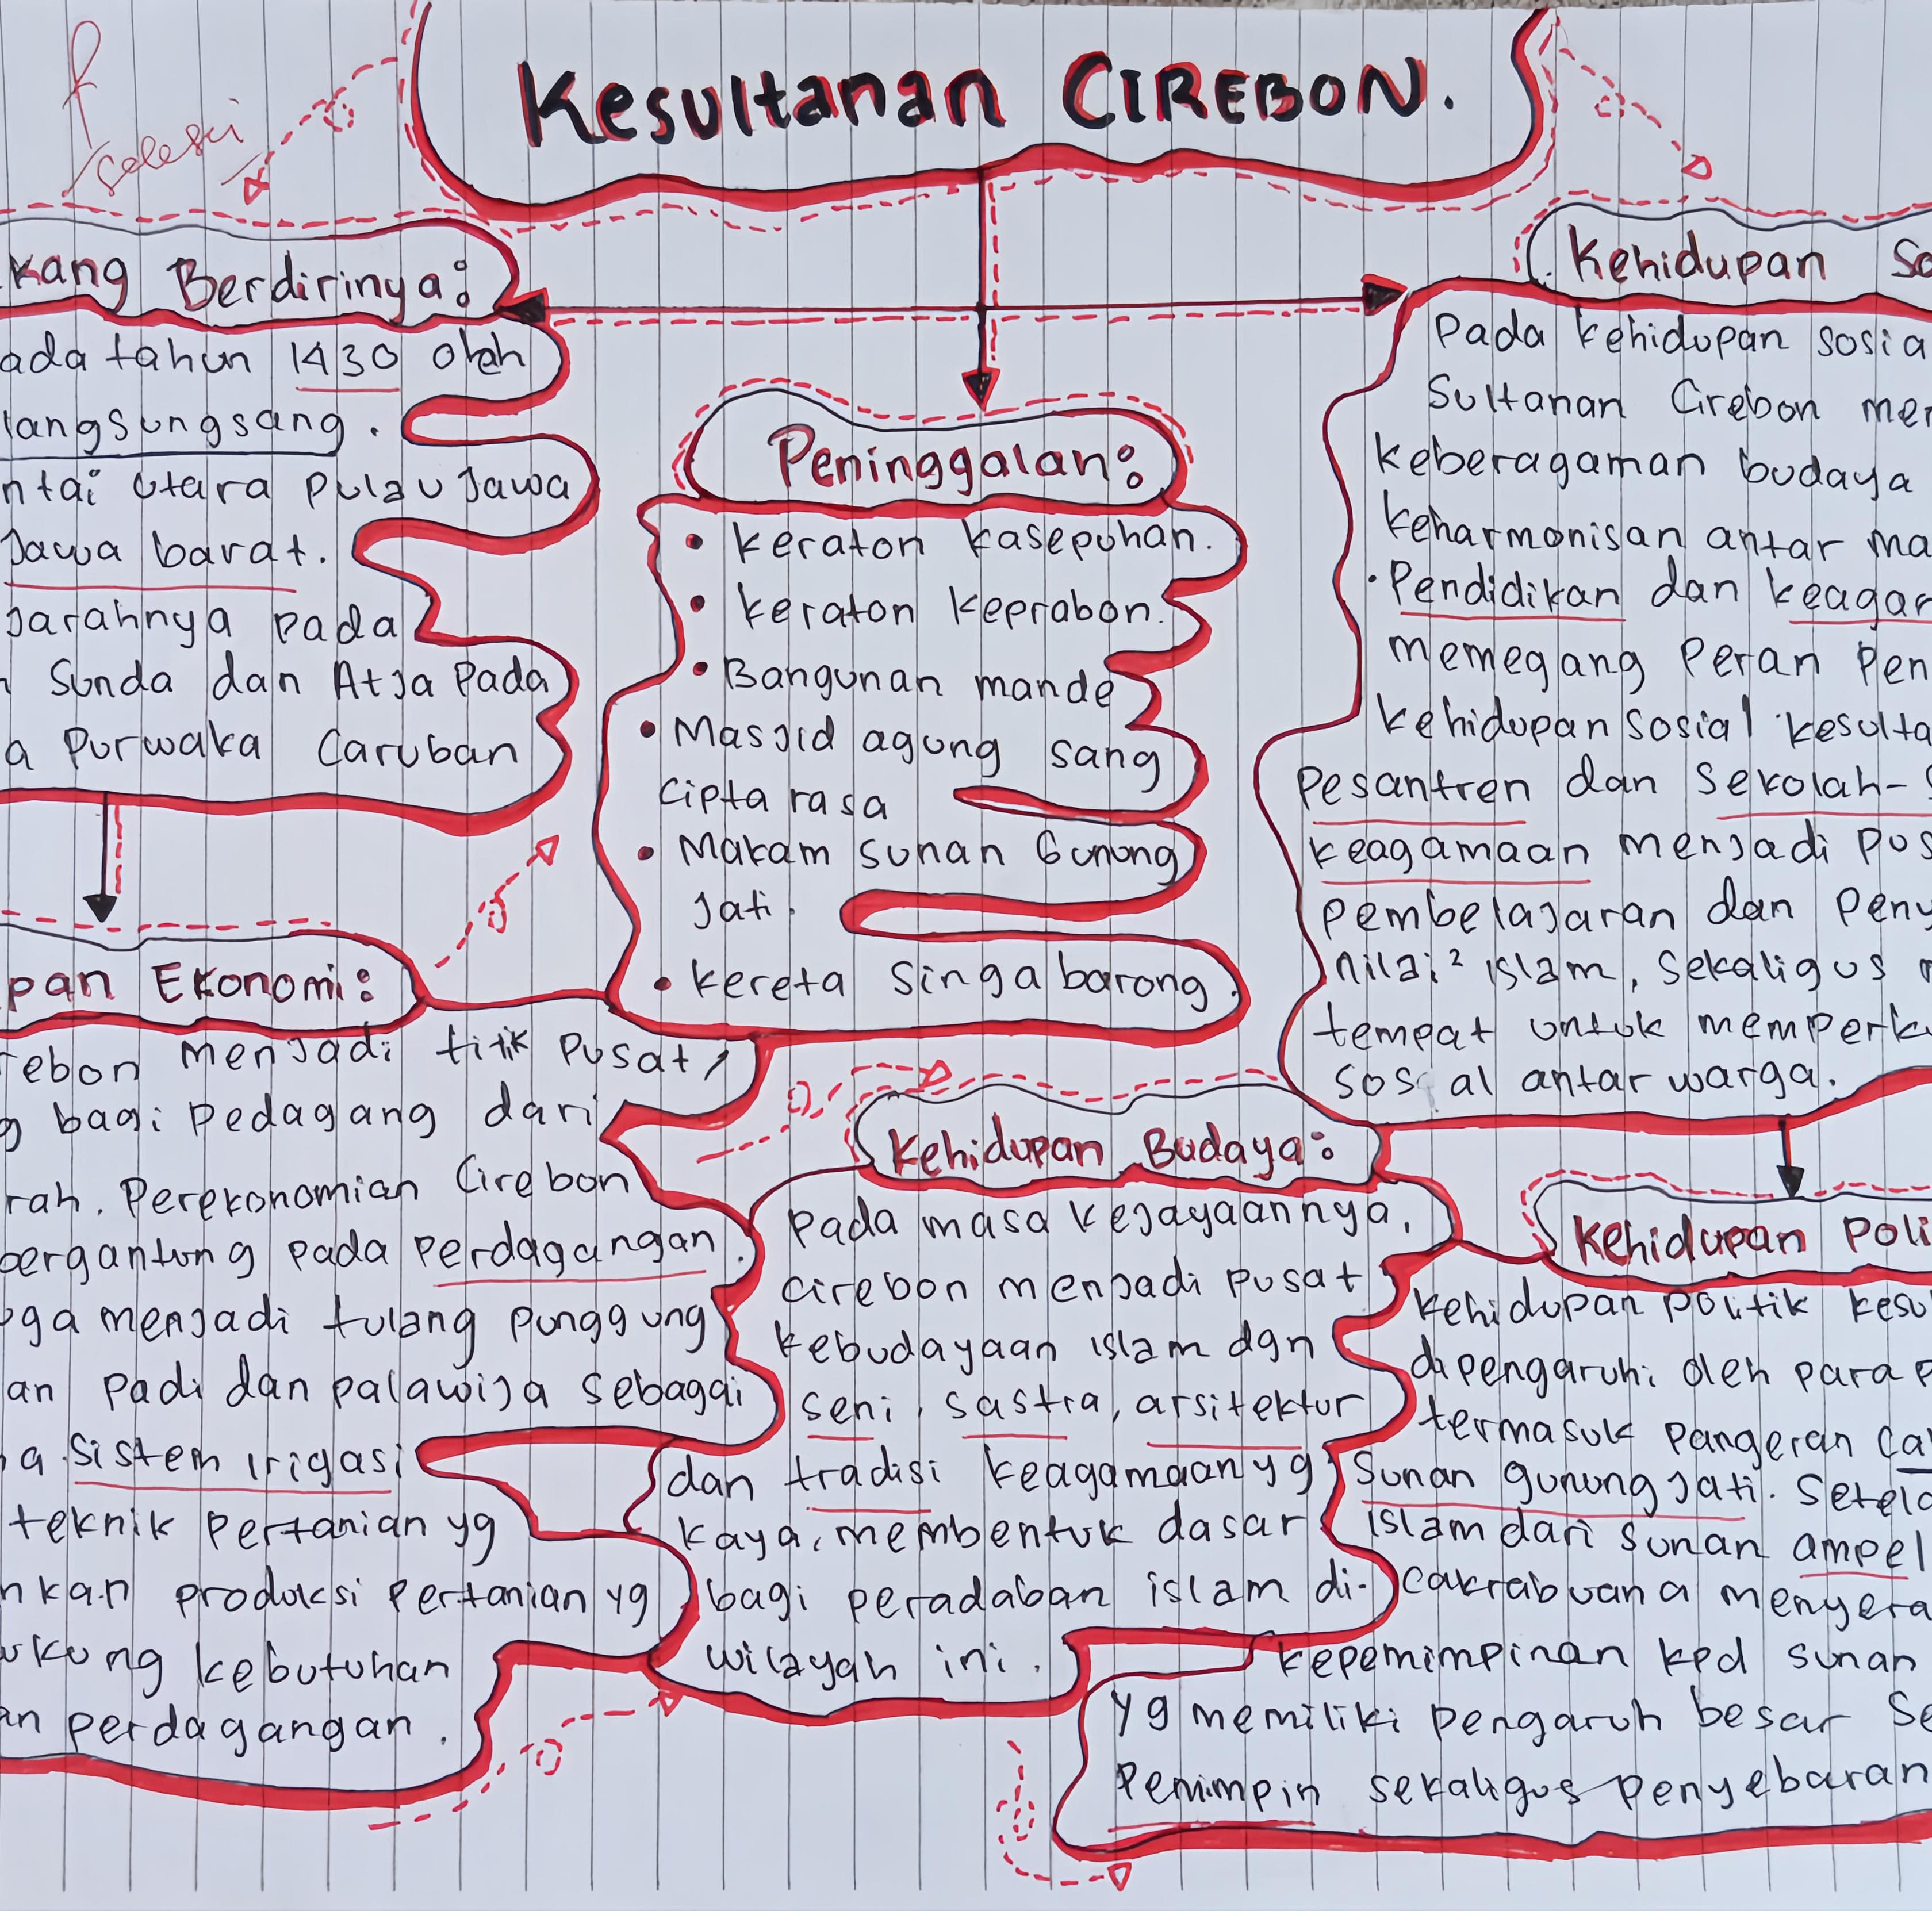 selesai
Kesultanan CIREBON.
kang Berdirinya:
ada tahun 1430 oleh
langsungsang.
ntai utara pulau Jawa
Jawa barat.
jarahnya pada
Sunda dan Atja Pada
a Purwaka Caruban
pan Ekonomi:
rebon menjadi titik Pusat,
g bagi pedagang dari
rah. Perekonomian Cirebon
bergantung pada Perdagangan.
ga menjadi tulang punggung
an padi dan palawija sebagai
a. Sistem irigasi
teknik Pertanian yg
nkan produksi Pertanian yg
ukung kebutuhan
an perdagangan.
Peninggalan:
• Keraton Kasepuhan.
• Keraton Keprabon.
• Bangunan mande
• Masjid agung sang
Cipta rasa
• Makam Sunan Gunung
Jati.
• Kereta Singa barong.
Kehidupan Budaya:
Pada masa kejayaannya,
cirebon menjadi pusat
kebudayaan islam dgn
seni, sastra, arsitektur
dan tradisi keagamaan yg
kaya, membentuk dasar
bagi peradaban islam di-
wilayah ini.
Kehidupan So
Pada kehidupan sosia
Sultanan Cirebon mer
keberagaman budaya
keharmonisan antar ma
• Pendidikan dan keagam
memegang Peran Pen
kehidupan sosial kesulta
Pesantren dan Sekolah-S
keagamaan menjadi pus
pembelajaran dan Peny
nilai² islam, sekaligus
tempat untuk memperk
sosial antar warga.
Kehidupan Poli
Kehidupan politik kesu
dipengaruhi oleh para P
termasuk Pangeran Ca
Sunan gunung Jati. Setela
islam dari sunan ampel
cakrabuana menyera
kepemimpinan kpd sunan
yg memiliki pengaruh besar Se
Pemimpin sekaligus Penyebaran